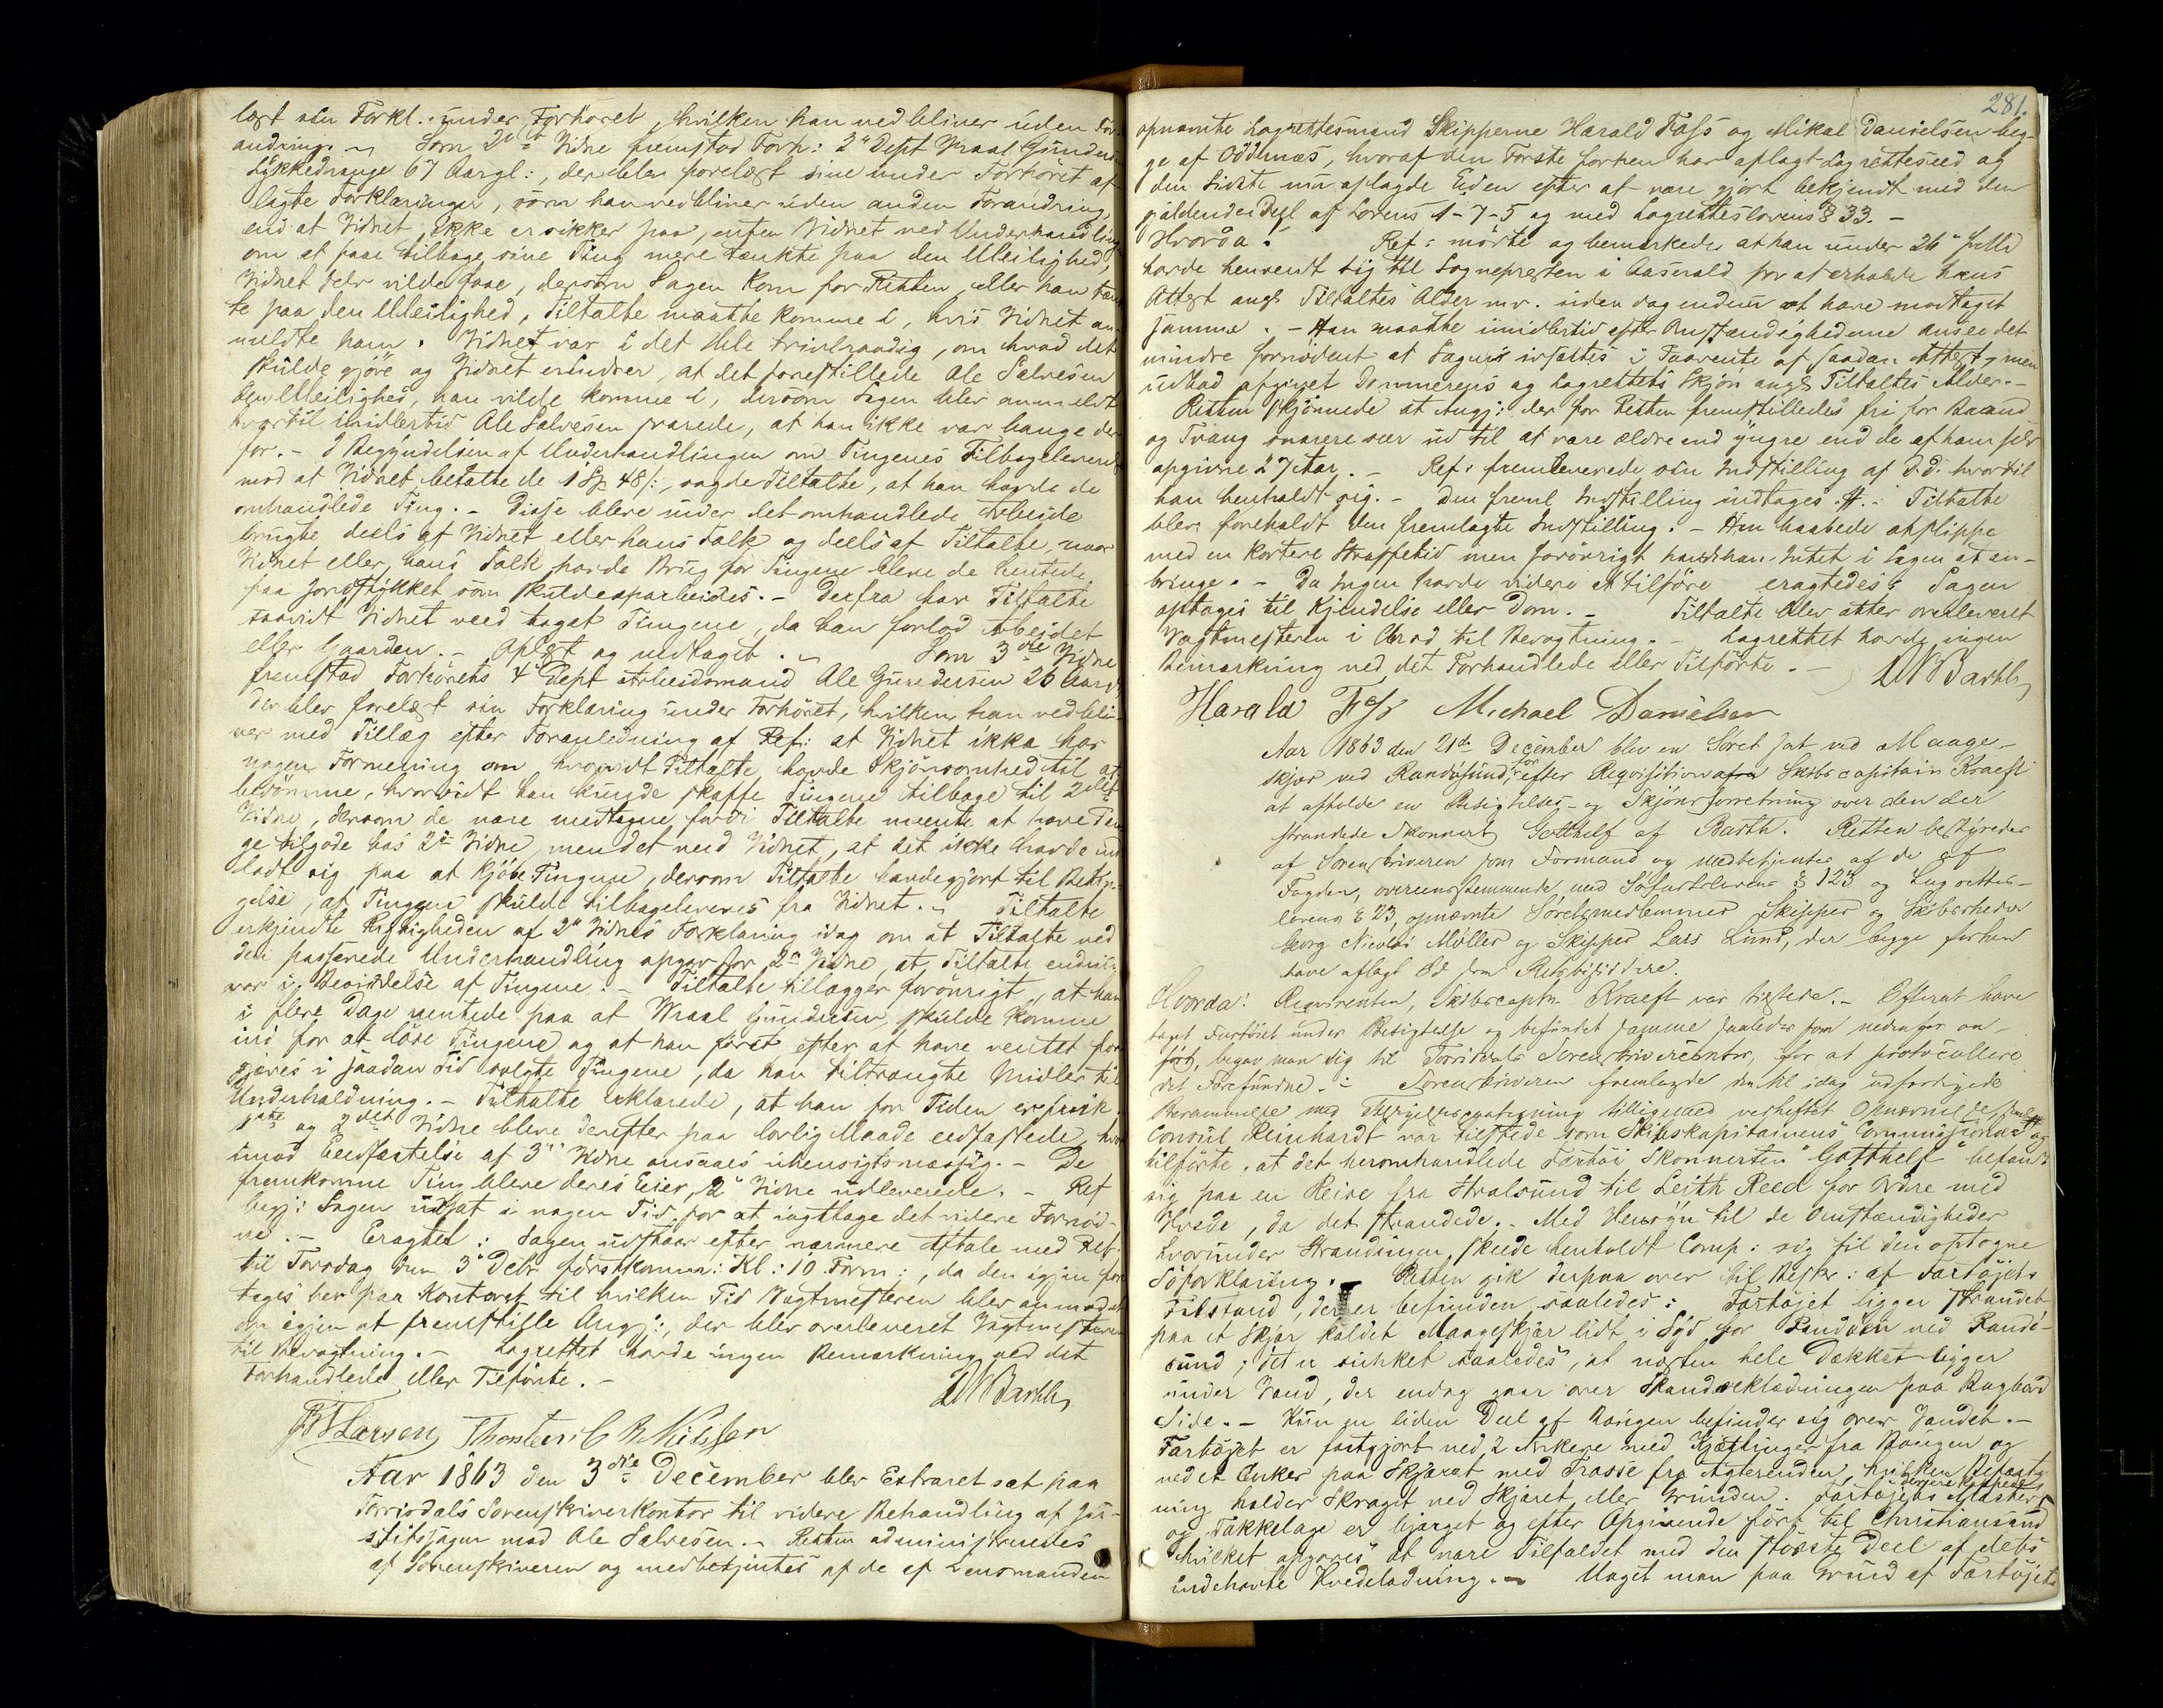 læst sin Forkl. under Forhöret, hvilken han vedbliver uden For-
andring. Som 2det Vidne fremstod Forh: 2n Dept Wraal Gunders.
Lykkedrange 67 Aargl:, der blev forelæst sine under Forhöret af-
lagte Forklaringer, som han vedbliver uden anden Forandring,
end at Vidnet ikke er sikker paa, enten Vidnet ved Underhandlingen
om at faae tilbage sine Ting mere tænkte paa den Uleilighed,
Vidnet selv vilde faae, dersom Sagen kom for Retten, eller han tænk-
te paa den Uleilighed, Tiltalte maatte komme i, hvis Vidnet an-
meldte ham. Vidnet var i det Hele tvivlraadig, om hvad det
skulde gjöre og Vidnet erindrer, at det forestillede Ole Salvesen
den Uleilighed, han vilde komme i, dersom Sagen blev anmeldt
hvortil imidlertid Ole Salvesen svarede, at han ikke var bange der-
for. - I Begyndelsen af Underhandlingen om Tingenes Tilbageleverelse
mod at Vidnet betalte de 1 Sp 48 /:, sagde Tiltalte, at han havde de
omhandlede Ting. - Disse bleve under det omhandlede Arbeide
brugte deels af Vidnet eller hans Folk og deels af Tiltalte, naar
Vidnet eller hans Folk havde Brug for Tingene bleve de hentede
paa Jordstykket som skulde oparbeides. - Derfra har Tiltalte
saavidt Vidnet veed taget Tingene, da han forlod Arbejdet
eller Gaarden. - Oplæst og vedtaget. - Som 3die Vidne
fremstod Forhörets 4de Dept Arbeidsmand Ole Gundersen 26 Aar gl
der blev forelæst sin Forklaring under Forhöret, hvilken han vedbli-
ver med Tillæg efter Foranledning af Ref: at Vidnet ikke har
nogen Formening om hvorvidt Tiltalte havde Skjönsomhed til at
bedömme, hvorvidt han kunde skaffe Tingene tilbage til 2det
Vidne, dersom de vare medtagne fordi Tiltalte meente at have Pen-
ge tilgode hos 2det Vidne, men det veed Vidnet, at det ikke havde ind-
ladt sig paa at kjöbe Tingene, dersom Tiltalte havde gjort til Betin-
gelse, at Tingene skulde tilbageleveres fra Vidnet. - Tiltalte
erkjendte Rigtigheden af 2det Vidnes Forklaring idag om at Tiltalte ved
den passerede Underhandling opgav for 2det Vidne, at Tiltalte endnu
var i Besiddelse af Tingene. - Tiltalte tillægger forövrigt, at han
i flere Dage ventede paa at Wraal Gundersen skulde komme
ind for at löse Tingene og at han först efter at have ventet for-
gjæves i saadan Tid solgte Tingene, da han tiltrængte Midler til
Underholdning. - Tiltalte erklærede, at han for Tiden er frisk.
1ste og 2det Vidne bleve derefter paa lovlig Maade eedfæstede, hvor-
imod Eedfæstelse af 3die Vidne ansaaes uhensigtsmæssig. - De
fremkomne Ting bleve deres Eier, 2det Vidne udleverede. - Ref
begj: Sagen udsat i nogen Tid for at iagttage det videre Fornöd-
ne. - Eragtet: Sagen udstaar efter nærmere Aftale med Ref:
til Torsdag den 3die Decbr förstkomm: Kl: 10 Form:, da den igjen fore-
tages her paa Kontoret til hvilken Tid Vagtmesteren blev anmodet
om igjen at fremstille Angj:, der blev overleveret Vagtmesteren
til Bevogtning. - Lagrettet havde ingen Bemærkning ved det
Forhandlede eller Tilförte. -
Barth
Larsen Thorsteen C B Nilssen
Aar 1863 den 3die December blev Extraret sat paa
Torrisdals Sorenskriverkontor til videre Behandling af Ju-
stitssagen mod Ole Salvesen. - Retten administreredes
af Sorenskriveren og medbetjentes af de af Lensmanden
281.
opnævnte Lagrettesmænd Skipperne Harald Foss og Mikal Danielsen beg-
ge af Odderness, hvoraf den Förste forhen har aflagt Lagretteseed og
den Sidste nu aflagde Eden efter at være gjort bekjendt med den
gjældende Deel af Lovens 1-7-5 og med Lagretteslovens § 33. -
Hvorda: Ref: mödte og bemærkede, at han under 26de f. Md
havde henvendt sig til Sognepresten i Aaserald for at erholde hans
Attest angl Tiltaltes Alder mv. uden dog endnu at have modtaget
samme. - Han maatte imidlertid efter Omstændighederne ansee det
mindre fornödent at Sagen udsattes i Paavente af saadan Attest, men
udbad afgivet Dommerens og Lagrettets Skjön angl Tiltaltes Alder. -
Retten skjönnede at Angj: der for Retten fremstilledes fri for Baand
og Tvang snarere saa ud til at være ældre end yngre end de af ham selv
opgivne 27 Aar. - Ref: fremleverede sin Indstilling af D.D. hvortil
han henholdt sig. - Den freml Indstilling indtages #. - Tiltalte
blev foreholdt den fremlagte Indstilling. - Han haabede at slippe
med en kortere Straffetid men forövrigt havde han Intet i Sagen at an-
bringe. - Da Ingen havde videre at tilföre eragtedes: Sagen
optages til Kjendelse eller Dom. - Tiltalte blev atter overleveret
Vagtmesteren i Chrsd til Bevogtning. - Lagrettet havde ingen
Bemærkning ved det Forhandlede eller Tilförte. -
Barth
Harald Foss Michael Danielsen
Aar 1863 den 21de December blev en Söret sat ved Maage-
skjær ved Randösund, for efter Reqvisition afra Skibscapitain Kraeft
at afholde en Besigtelses- og Skjönsforretning over den der
strandede Skonnert Gotthelf af Barth. Retten bestyredes
af Sorenskriveren som Formand og medbetjentes af de af
Fogden, overensstemmende med Söfartslovens § 123 og Lagrettes-
lovens § 23, opnævnte Söretsmedlemmer Skipper og Skibsrheder
Georg Nicolai Møller og Skipper Lars Lund, der begge forhen
have aflagt Ed som Retsbisiddere.
Hvorda: Reqvirenten, Skibscaptn Kraeft var tilstede. - Efterat have
taget Fartöiet under Besigtelse og befundet samme saaledes som nedenfor an-
fört, begav man sig til Torrisdals Sorenskrivercontor, for at protocollere
det Forefundne. - Sorenskriveren fremlagde den til idag udfærdigede
Berammelse med Forkyndelsespaategning tilligemed vedheftet Opnævnelse
Consul Reinhardt var tilstede som Skibskapitainens Commissionær og
tilförte, at det heromhandlede Fartöi Skonnerten "Gotthelf" befandt
sig paa en Reise fra Stralsund til Leith Reed for Ordre med
Hvede, da det strandede. - Med Hensyn til de Omstændigheder
hvorunder Strandingen skeede henholdt Comp: sig til den optagne
Söforklaring. - Retten gik derpaa over til Beskr: af Fartöjets
Tilstand, der er befunden saaledes: Fartöjet ligger strandet
paa et Skjær kaldet Maageskjær lidt i Syd for Randöen ved Randö-
sund; det er sunket saaledes, at næsten hele Dækket ligger
under Vand, der endog gaar over Skandseklædningen paa Bagbord
Side. - Kun en liden Deel af Bougen befinder sig over Vandet. -
Fartöjet er fastgjort ved 2 Ankere med Kjættinger fra Bougen og
ved et Anker paa Skjæret med Trosse fra Agterenden, hvilken Befæst-
ning holder Skroget ved Skjæret eller Grunden. Fartöjets Master
og Takkelage er bjærget og efter Opgivende fört til Christiansand
hvilket opgaves at være Tilfældet med den störste Deel af dets
indehavte Hvedeladning. - Uaget man paa Grund af Fartöjets